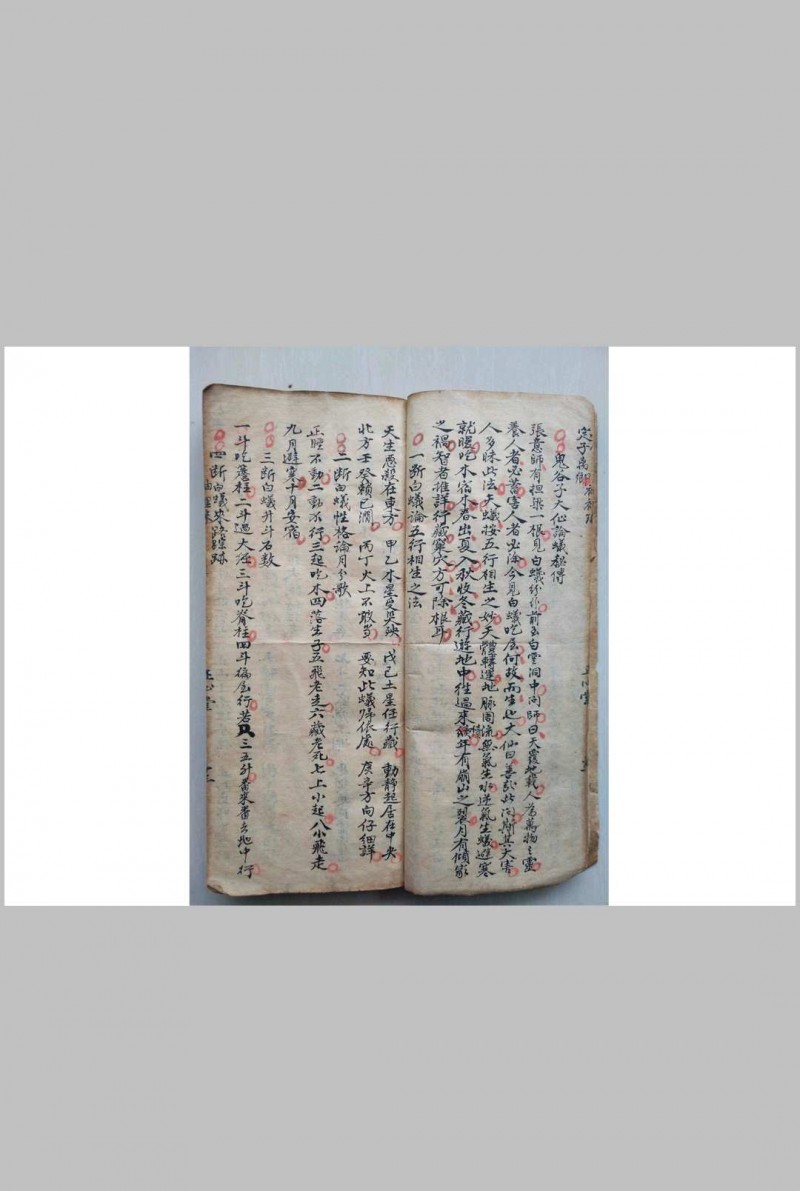 鬼谷子大仙論蟻秘傳
張意師有担梁一根見白蟻紛紛前至白雲洞中问師曰天覆地載人為萬物之靈
養人者必蓄害人者必除今見白蟻吃屋何故而生也大仙曰善哉此问斯其大害
人多昧此法夫蟻按五行相生之妙天體轉運地脈周流無氣生水逆氣生蟻避寒
就暖吃木宿水春出夏入秋收冬藏行遊地中往過來續年有崩山之裂月有傾家
之禍智者推詳行藏窠穴方可除根耳
一断白蟻論五行相生之法
天生惡殺在東方 甲乙木星受災殃 戊己土星任行藏 動静起居在中央
北方壬癸賴已潤 丙丁火上不敢当 要知此蟻歸依處 庚辛方向仔細詳
二断白蟻性格論月令歌
正腔不動二動不行三起吃木四落生子五飛老走六藏老死七上小起八小飛走
九月避寒十月安宿
三断白蟻升斗石数
一斗吃簷柱二斗過大梁三斗吃脊柱四斗偏屋行若 三五升畨來畨去地中行
四断白蟻來路踪跡